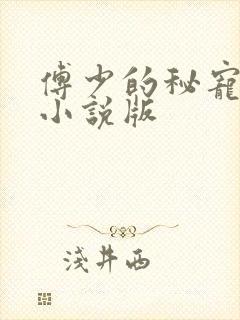 傅少的秘寵
小說版
淺井西